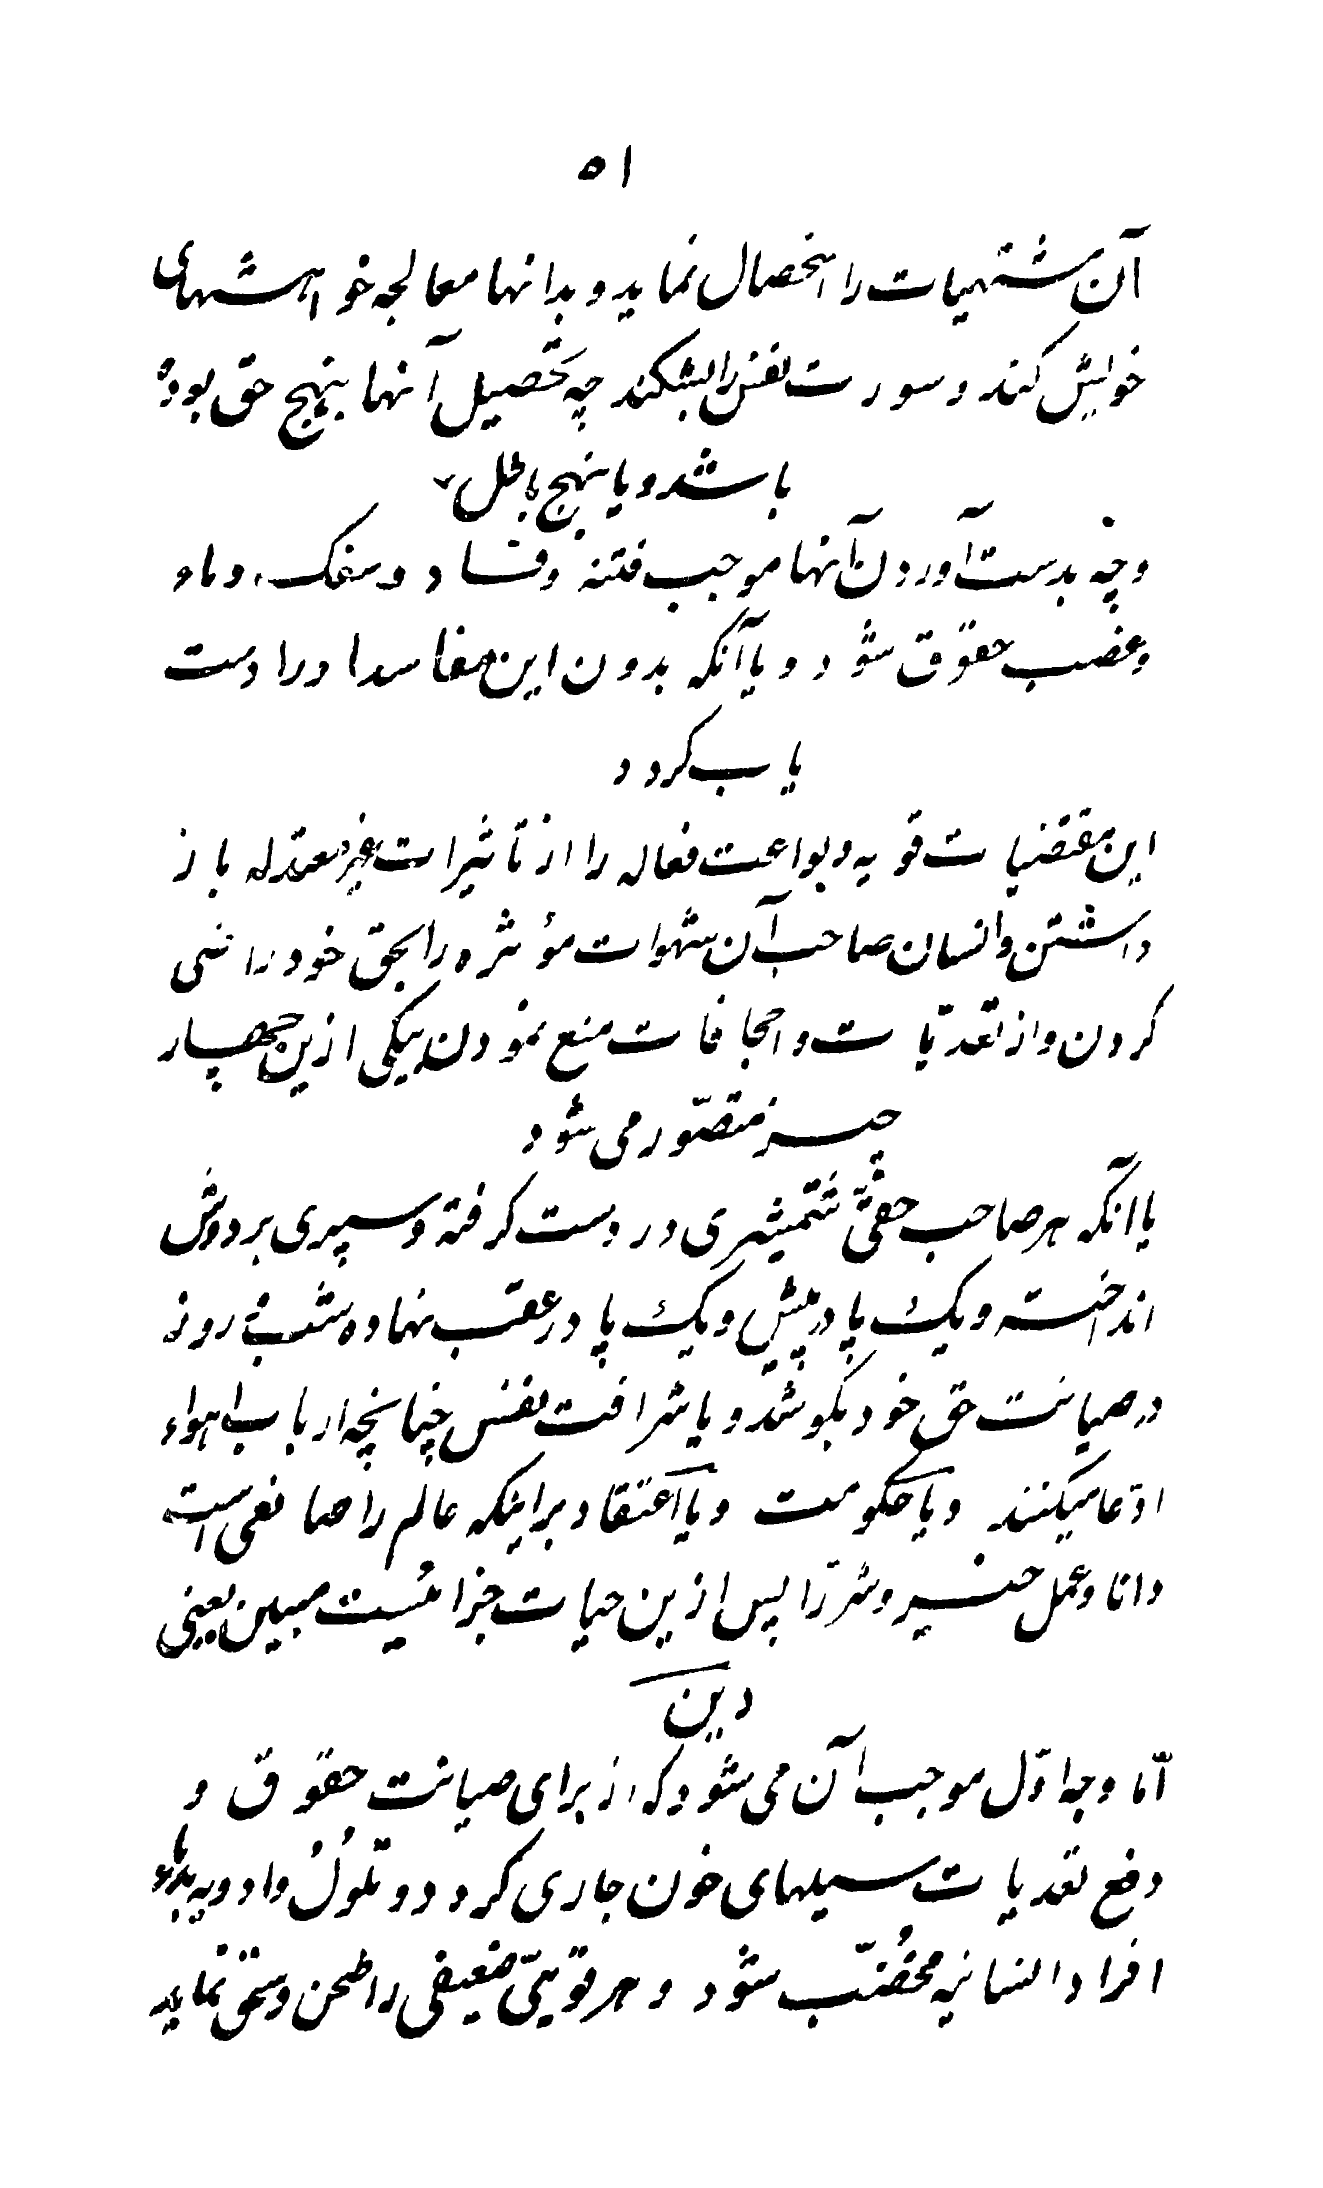 ۵۱
آن مشتهیات را استحصال نماید و بدانها معالجه خواهشهای
خویش کند و سورت نفس را بشکند چه تحصیل آنها بنهج حق بوده
باشد و یا بنهج باطل
و چه بدست آوردن آنها موجب فتنه و فساد و سفک دماء
و غصب حقوق شود و یا آنکه بدون این مفاسد او را دست
یاب گردد
این مقتضیات قویه و بواعث فعاله را از تأثیرات غیر معتدله باز
داشتن و انسان صاحب آن شهوات مؤثره را بحق خود راضی
کردن و از تعدّیات و اجحافات منع نمودن بیکی ازین چهار
چیز متصوّر می شود
یا آنکه هر صاحب حقیّ شمشیری در دست گرفته و سپری بر دوش
انداخته و یک پا در پیش و یک پا در عقب نهاده شب و روز
در صیانت حق خود بکوشد و یا شرافت نفس چنانچه ارباب اهواء
ادّعا میکنند و یا حکومت و یا اعتقاد بر اینکه عالم را صانعی است
دانا و عمل خیر و شرّ را پس ازین حیات جزائیست مبین یعنی
دین
امّا وجه اوّل موجب آن می شود که از برای صیانت حقوق و
دفع تعدیات سیلهای خون جاری گردد و تلول و ادویه بدماء
افراد انسانیه مخضّب شود و هر قویّی ضعیفی را طحن و سحق نماید